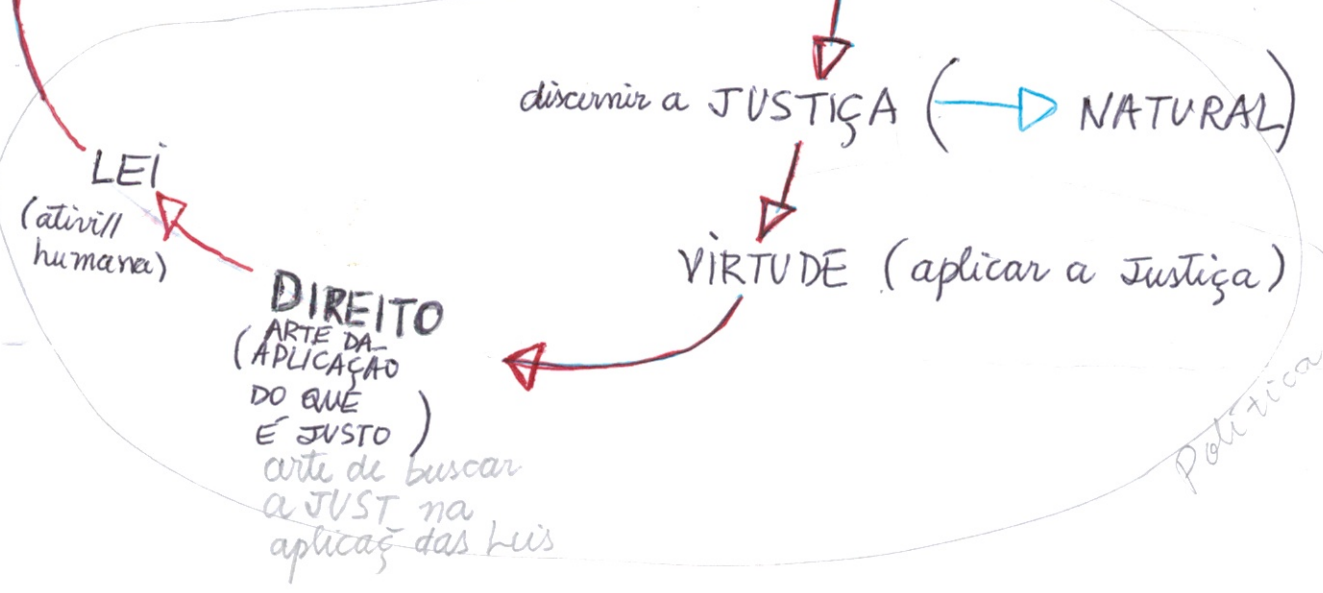 discernir a JUSTIÇA ( NATURAL)
LEI
(ativi//
humana)
VIRTUDE (aplicar a Justiça)
DIREITO
(ARTE DA
APLICAÇÃO
DO QUE
É JUSTO)
arte de buscar
a JUST na
aplicaç das Leis
Política